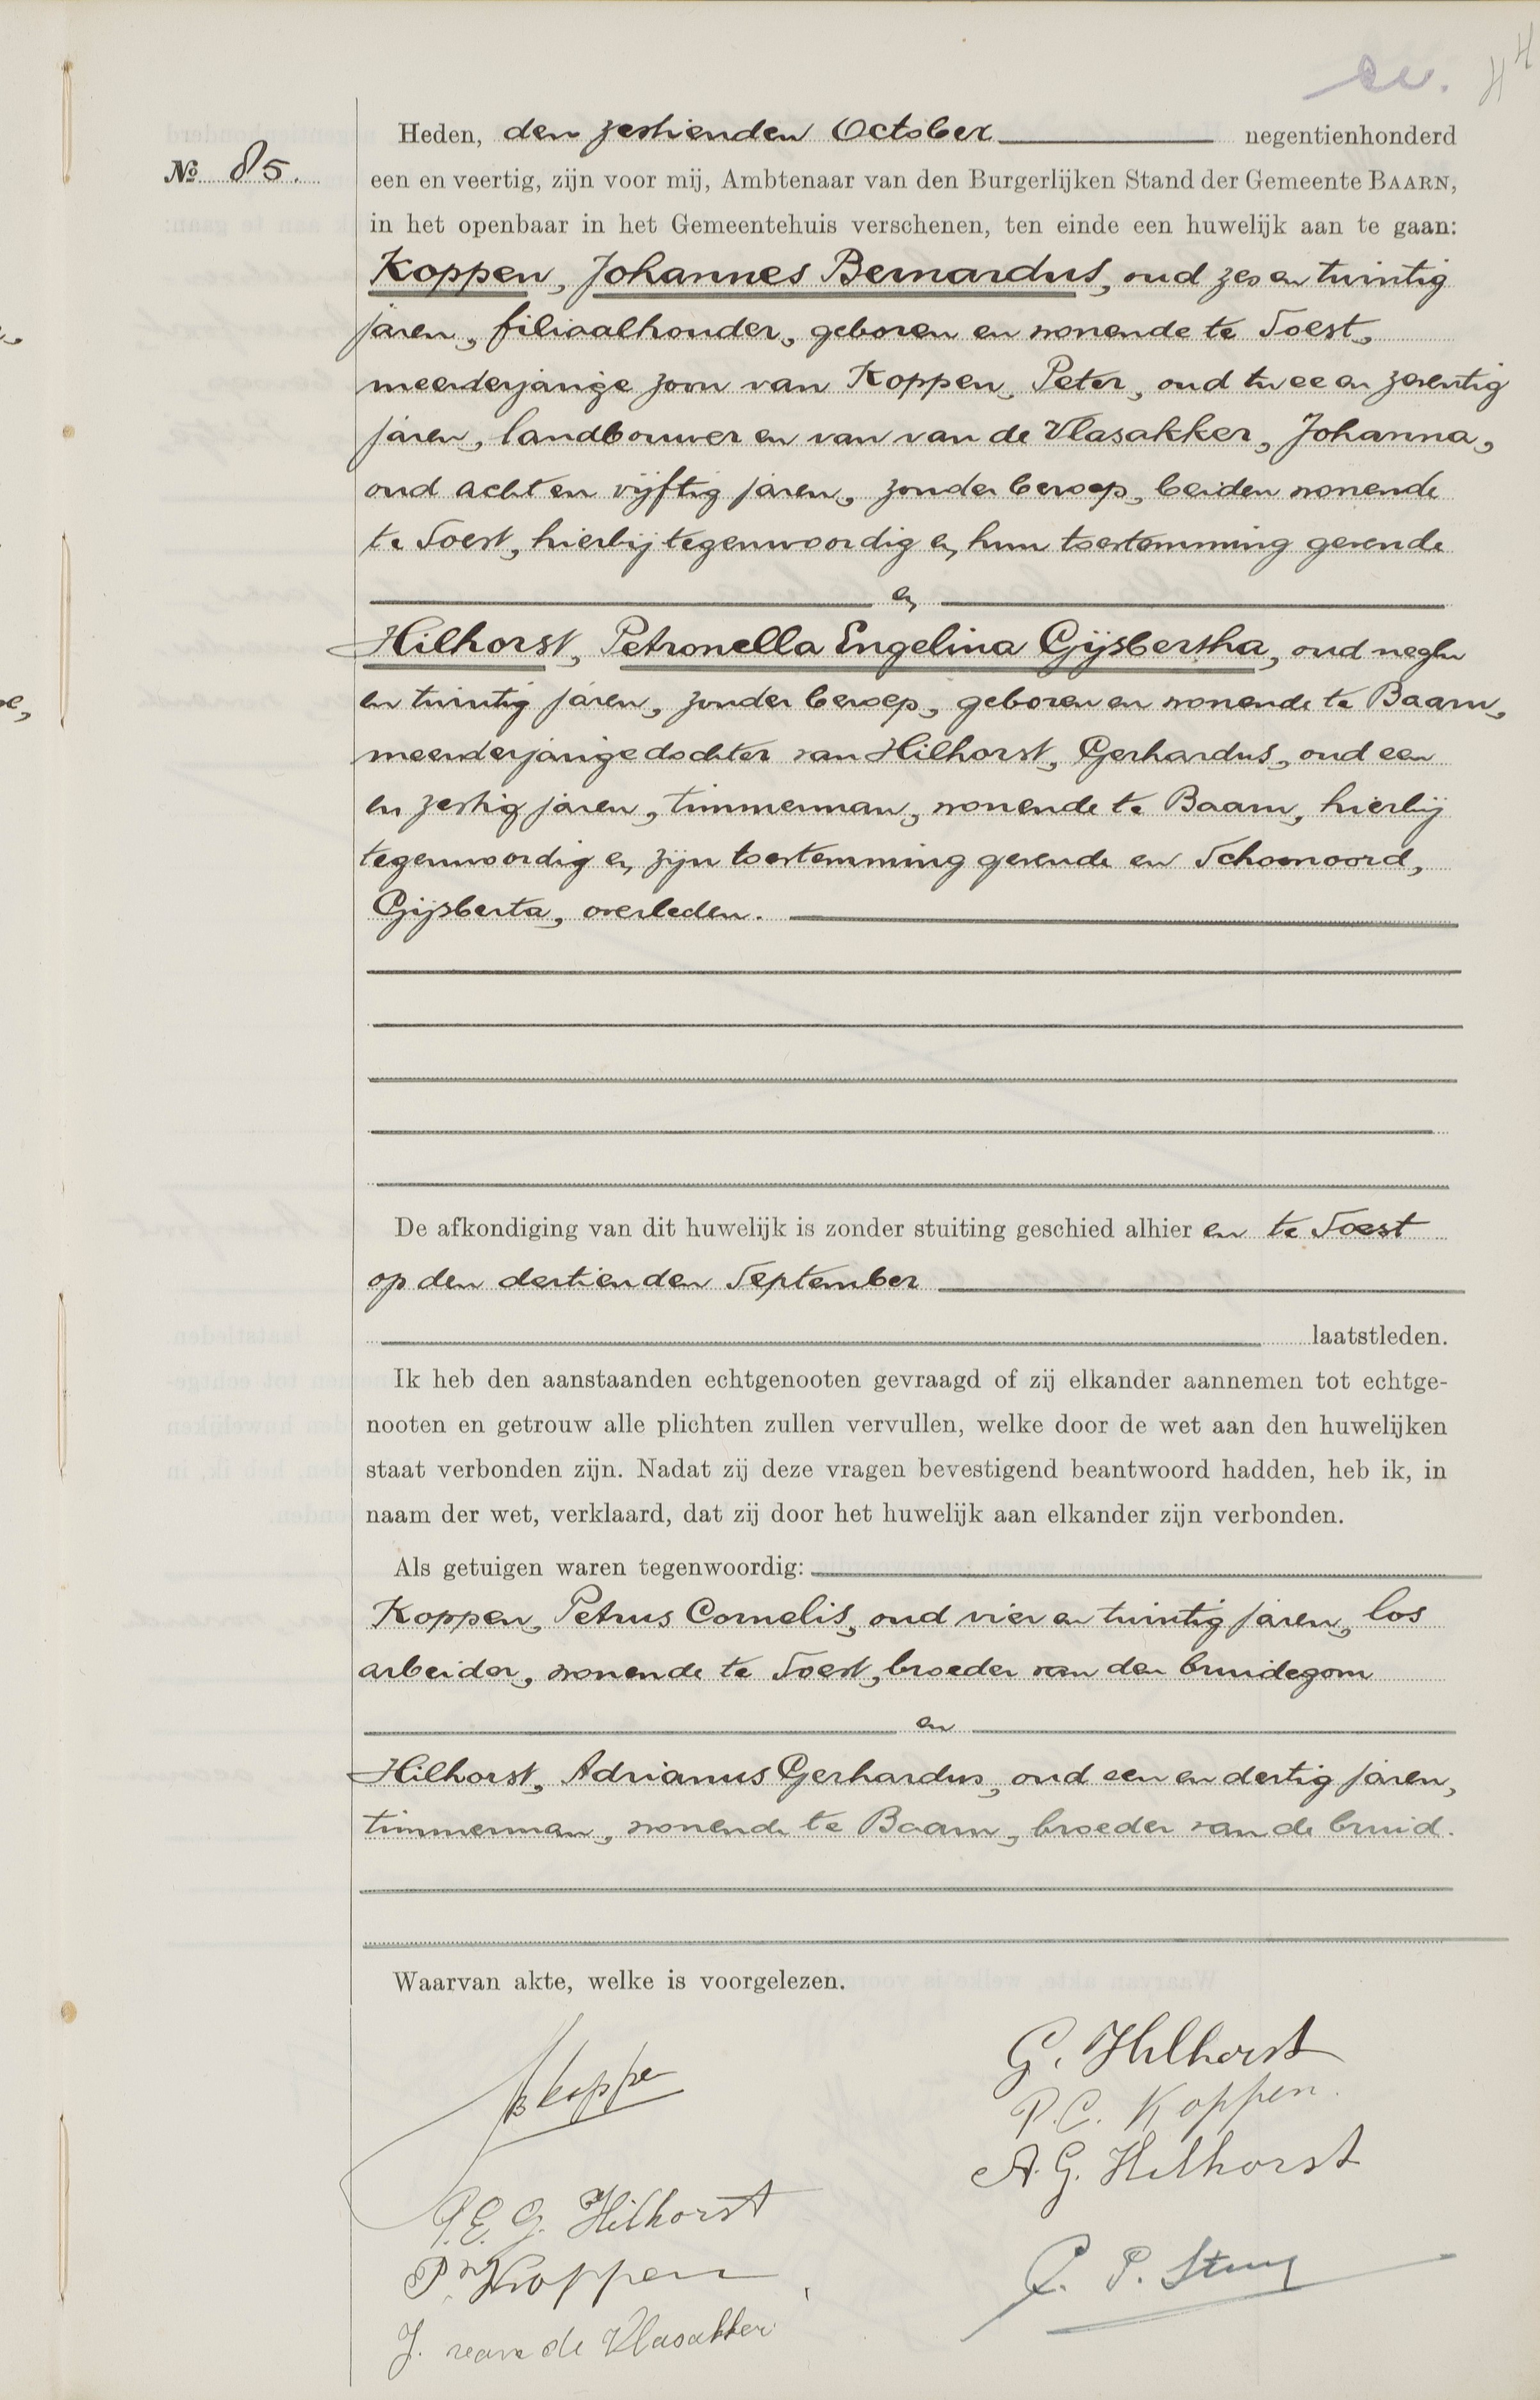 Heden, den zestienden October negentienhonderd
№ 85.
een en veertig, zijn voor mij, Ambtenaar van den Burgerlijken Stand der Gemeente BAARN,
in het openbaar in het Gemeentehuis verschenen, ten einde een huwelijk aan te gaan:
Koppen, Johannes Bernardus, oud zes en twintig
jaren, filiaalhouder, geboren en wonende te Soest,
meerderjarige zoon van Koppen, Peter, oud twee en zeventig
jaren, landbouwer en van van de Vlasakker, Johanna,
oud acht en vijftig jaren, zonder beroep, beiden wonende
te Soest, hierbij tegenwoordig en hun toestemming gevende
en
Hilhorst, Petronella Engelina Gijsbertha, oud negen
en twintig jaren, zonder beroep, geboren en wonende te Baarn,
meerderjarige dochter van Hilhorst, Gerhardus, oud een
en zestig jaren, timmerman, wonende te Baarn, hierbij
tegenwoordig en zijn toestemming gevende en Schoonoord,
Gijsberta, overleden.
De afkondiging van dit huwelijk is zonder stuiting geschied alhier en te Soest
op den dertienden September
laatstleden.
Ik heb den aanstaanden echtgenooten gevraagd of zij elkander aannemen tot echtge-
nooten en getrouw alle plichten zullen vervullen, welke door de wet aan den huwelijken
staat verbonden zijn. Nadat zij deze vragen bevestigend beantwoord hadden, heb ik, in
naam der wet, verklaard, dat zij door het huwelijk aan elkander zijn verbonden.
Als getuigen waren tegenwoordig:
Koppen, Petrus Cornelis, oud vier en twintig jaren, los
arbeider, wonende te Soest, broeder van den bruidegom
en
Hilhorst, Adrianus Gerhardus, oud een en dertig jaren,
timmerman, wonende te Baarn, broeder van de bruid.
Waarvan akte, welke is voorgelezen.
G. Hilhorst
P. C. Koppen.
A. G. Hilhorst
P. E. G. Hilhorst
P. Koppen
J. van de Vlasakker